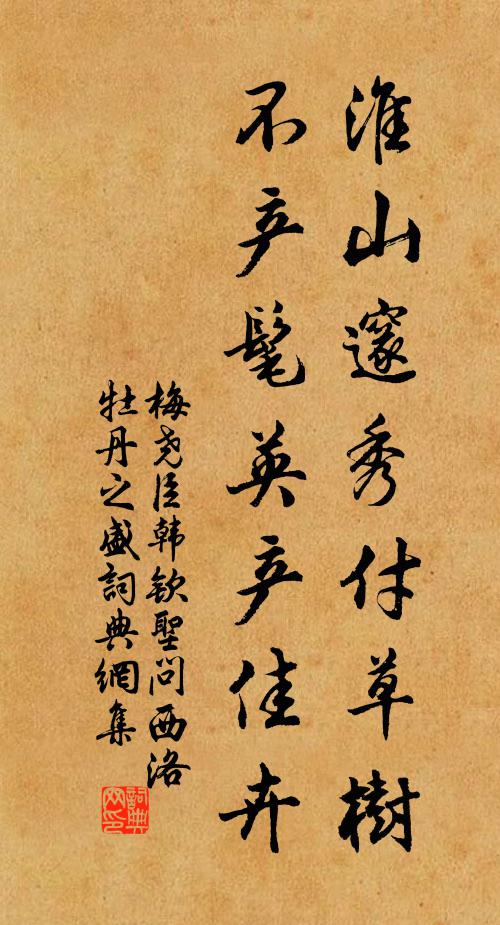 淮山邃秀付草樹
不产髦英产佳卉
梅尧臣韩钦聖问西洛
牡丹之盛詞典網集
詞典网印